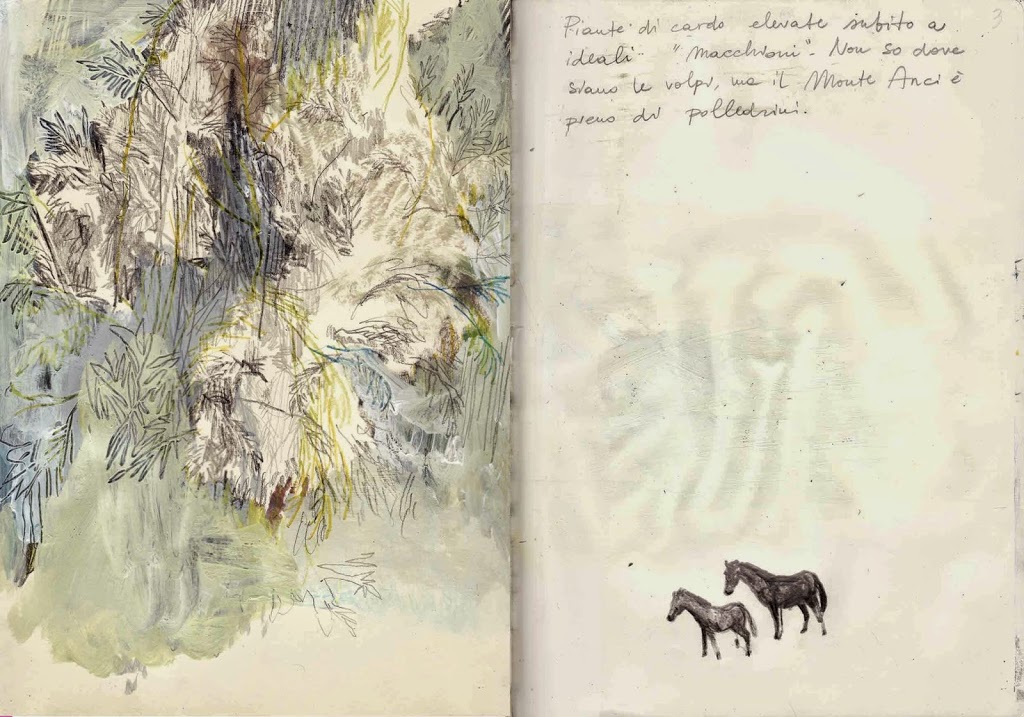 Piante di cardo elevate subito a
ideali "macchioni". Non so dove
siano le volpi, ma il Monte Arci è
pieno di polledrini.
3